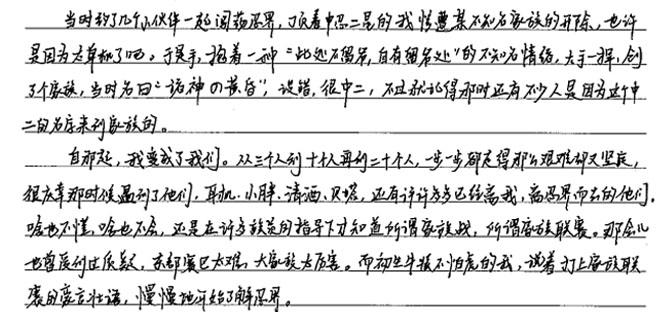 当时约了几个小伙伴一起闯荡忍界,顶着中忍二星的我惨遭某不知名家族的开除,也许
是因为太单机了吧。于是乎,抱着一种“此处不留爷,自有留爷处”的不知名情绪,大手一挥,创
了个家族,当时名曰“诸神の黄昏”,没错,很中二,不过我记得那时还有不少人是因为这个中
二的名字来到家族的。
自那起,我变成了我们。从三个人到十个人再到二十个人,一步一步都走得那么艰难却又坚定,
很庆幸那时候遇到了他们,耳机、小胖、清酒、贝塔,还有许许多多已经离我,离忍界而去的他们。
啥也不懂,啥也不会,还是在许多族员的指导下才知道所谓家族战,所谓家族联赛。那会儿
也曾质问过质疑,东部赛区太难,大家族太厉害。而初生牛犊不怕虎的我,说着打上家族联
赛的豪言壮语,慢慢地开始了解忍界。